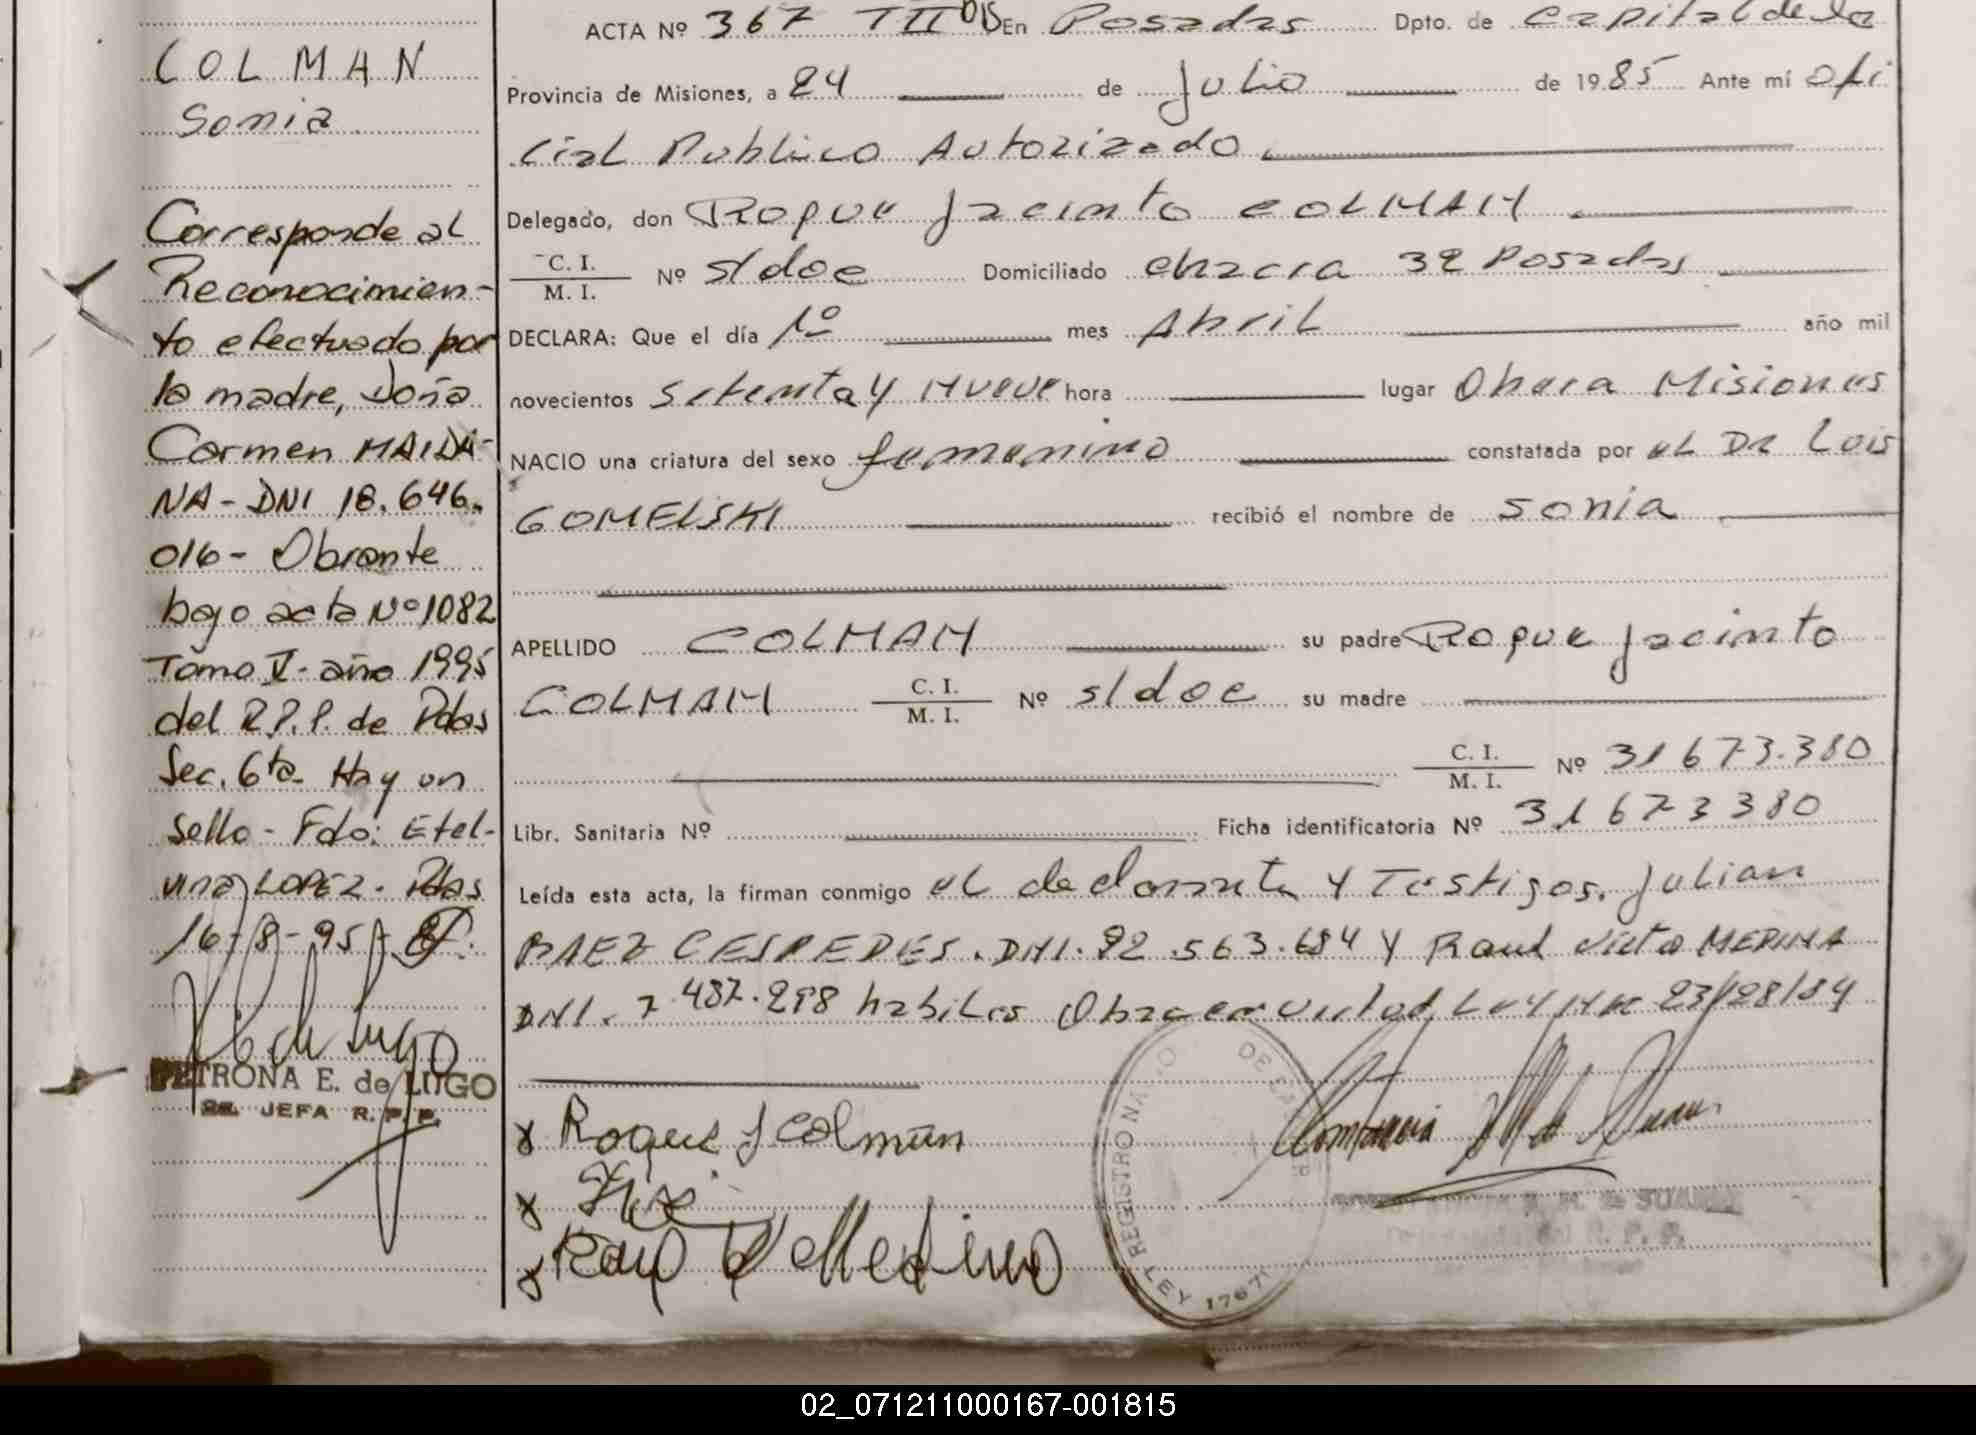 COLMAN
Sonia
Corresponde al
Reconocimien-
to efectuado por
la madre, Doña
Carmen MAIDA-
NA - DNI 18.646.
016 - Obrante
bajo acta Nº 1082
Tomo V - año 1995
del R.P.P. de Pdas
Sec. 6ta - Hay un
sello - Fdo: Etel-
vina LOPEZ - Pdas
16-8-95
PETRONA E. de LUGO
JEFA R.P.P.
ACTA Nº 367 TII bis En Posadas Dpto. de Capital de la
Provincia de Misiones, a 24 de Julio de 1985 Ante mí Ofi
cial Publico Autorizado
Delegado, don Roque Jacinto COLMAN
C. I. / M. I. Nº s/doc Domiciliado chacra 32 Posadas
DECLARA: Que el día 1º mes Abril año mil
novecientos setenta y Nueve hora lugar Obera Misiones
NACIO una criatura del sexo femenino constatada por el Dr Luis
GOMELSKI recibió el nombre de Sonia
APELLIDO COLMAN su padre Roque Jacinto
COLMAN C. I. / M. I. Nº s/doc su madre
C. I. / M. I. Nº 31 673.380
Libr. Sanitaria Nº Ficha identificatoria Nº 31 673 380
Leída esta acta, la firman conmigo el declarante y Testigos. Julian
BAEZ CESPEDES. DNI. 92.563.684 y Raul Victo MEDINA
DNI. 7.487.298 habiles Obra en virtud Ley Nº 23/28/84
x Roque J Colmán
x
x Raul V Medina
REGISTRO NA
LEY 17671
SUAREZ
R. P. P.
02_071211000167-001815